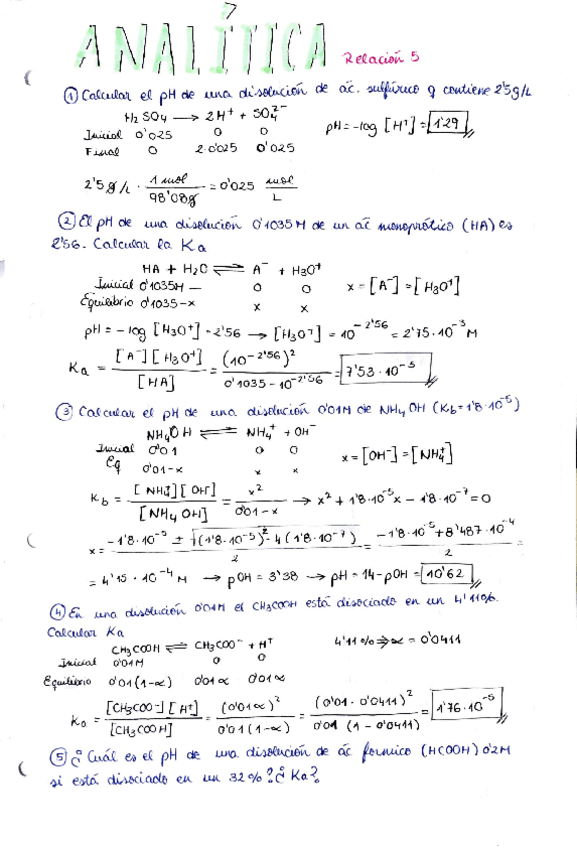 ANALÍTICA Relación 5
① Calcular el pH de una disolución de ác. sulfúrico q contiene 2'5g/L
H₂SO₄ → 2H⁺ + SO₄²⁻
Inicial 0'025 0 0 pH=-log [H⁺]=1'29
Final 0 2·0'025 0'025
2'5g/L · 1 mol / 98'08g = 0'025 mol/L
② El pH de una disolución 0'1035M de un ác monoprótico (HA) es
2'56. Calcular la Ka
HA + H₂O ⇌ A⁻ + H₃O⁺
Inicial 0'1035M — 0 0 x = [A⁻] = [H₃O⁺]
Equilibrio 0'1035-x x x
pH = -log [H₃O⁺] = 2'56 → [H₃O⁺] = 10^-2'56 = 2'75·10⁻³ M
Ka = [A⁻][H₃O⁺] / [HA] = (10^-2'56)² / 0'1035-10^-2'56 = 7'53·10⁻⁵
③ Calcular el pH de una disolución 0'01M de NH₄OH (Kb=1'8·10⁻⁵)
NH₄OH ⇌ NH₄⁺ + OH⁻
Inicial 0'01 0 0 x=[OH⁻]=[NH₄⁺]
Eq 0'01-x x x
Kb = [NH₄⁺][OH⁻] / [NH₄OH] = x² / 0'01-x → x² + 1'8·10⁻⁵x - 1'8·10⁻⁷ = 0
x = -1'8·10⁻⁵ ± √(1'8·10⁻⁵)² - 4(1'8·10⁻⁷) / 2 = -1'8·10⁻⁵ + 8'487·10⁻⁴ / 2 =
= 4'15·10⁻⁴ M → pOH = 3'38 → pH = 14-pOH = 10'62
④ En una disolución 0'01M el CH₃COOH está disociado en un 4'11%.
Calcular Ka
CH₃COOH ⇌ CH₃COO⁻ + H⁺ 4'11% ⇒ α = 0'0411
Inicial 0'01M 0 0
Equilibrio 0'01(1-α) 0'01α 0'01α
Ka = [CH₃COO⁻][H⁺] / [CH₃COOH] = (0'01α)² / 0'01(1-α) = (0'01·0'0411)² / 0'01 (1-0'0411) = 1'76·10⁻⁵
⑤ ¿Cuál es el pH de una disolución de ác formico (HCOOH) 0'2M
si está disociado en un 32%? ¿Ka?